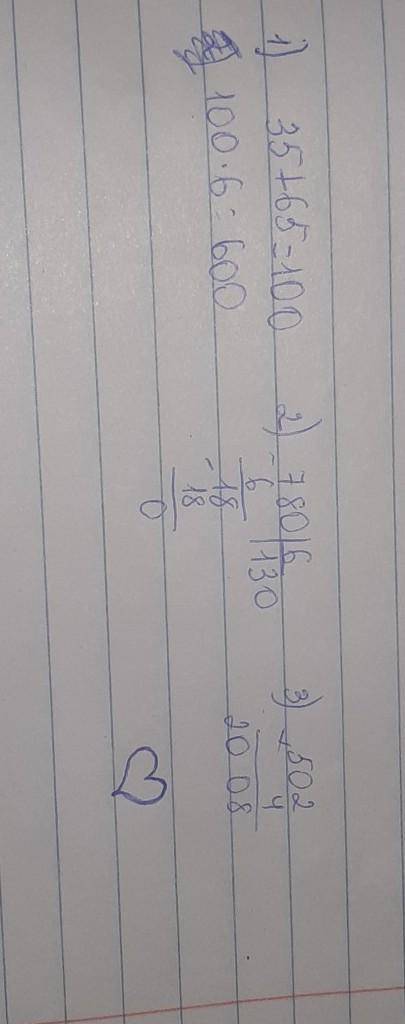 1) 35+65=100
2) 780 6
- 6 130
- 18
18
0
3) × 502
4
2008
4) 100·6=600